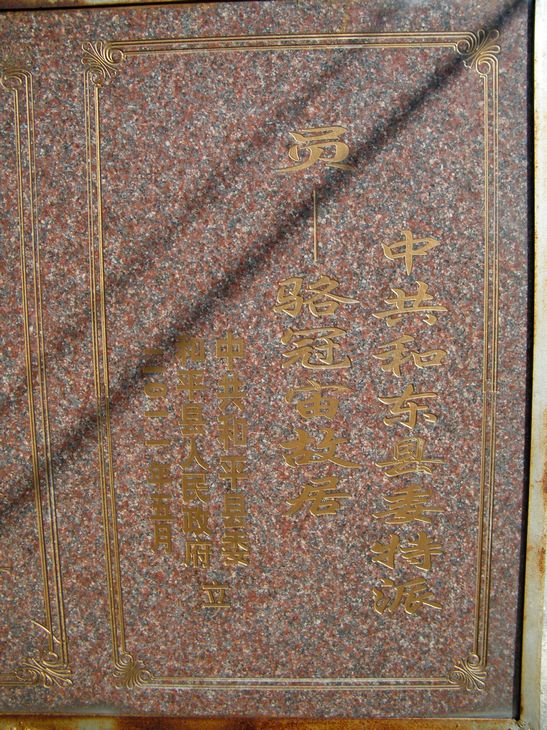 中共和东县委特派
员—骆冠宙故居
中共和平县委
和平县人民政府 立
二〇一一年五月